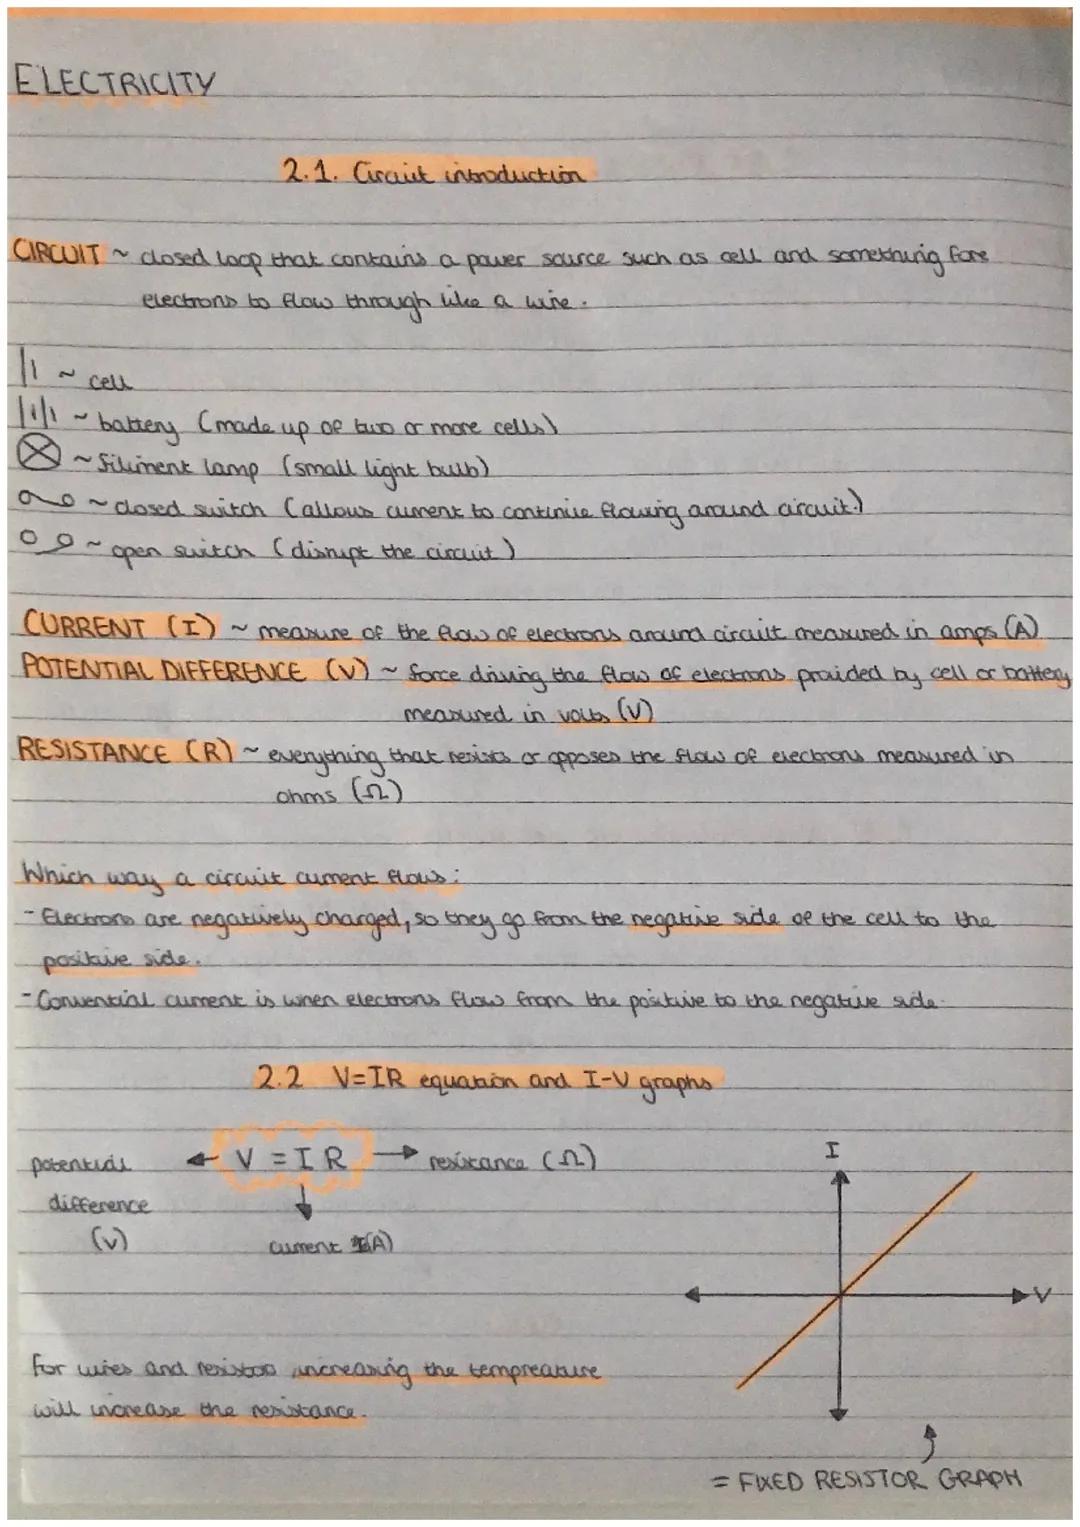 ELECTRICITY
2.1. Circuit introduction
CIRCUIT ~ closed loop that contains a power source such as cell and something fore
electrons to flow through like a wire.
~ cell
~ battery (made up of two or more cells)
~ filiment lamp (small light bulb)
~ closed switch (allows current to continue flowing around circuit.)
~ open switch (disrupt the circuit)
CURRENT (I) ~ measure of the flow of electrons around circuit measured in amps (A)
POTENTIAL DIFFERENCE (V) ~ force driving the flow of electrons provided by cell or battery
measured in volts (V)
RESISTANCE (R) ~ everything that resists or opposes the flow of electrons measured in
ohms (Ω)
Which way a circuit current flows:
- Electrons are negatively charged, so they go from the negative side of the cell to the
positive side.
- Convential current is when electrons flow from the positive to the negative side.
2.2 V=IR equation and I-V graphs
potential
difference
(V)
V = I R
resistance (Ω)
current (A)
I
V
For wires and resistors increasing the tempreature
will increase the resistance.
= FIXED RESISTOR GRAPH